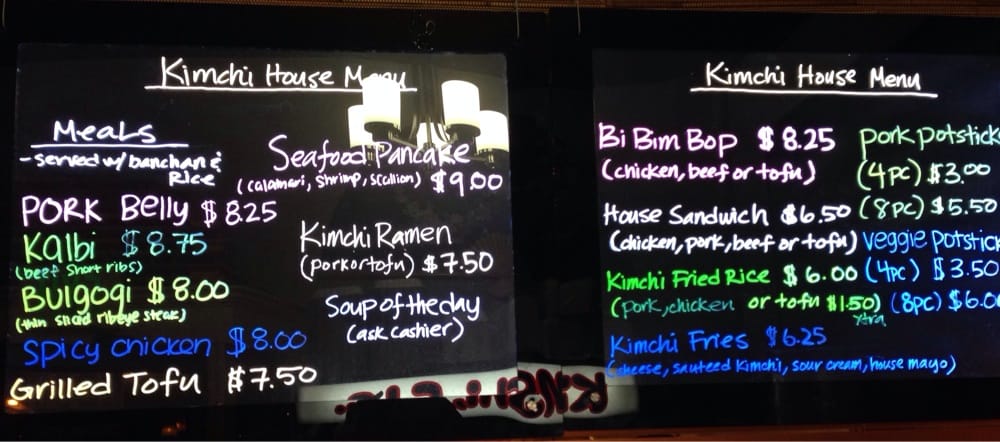 Kimchi House Menu
Meals
- served w/ banchan &
Rice
PORK Belly $8.25
Kalbi $8.75
(beef short ribs)
Bulgogi $8.00
(thin sliced ribeye steak)
Spicy chicken $8.00
Grilled Tofu $7.50
Seafood Pancake
(calamari, shrimp, scallion) $9.00
Kimchi Ramen
(pork or tofu) $7.50
Soup of the day
(ask cashier)
Kimchi House Menu
Bi Bim Bop $8.25
(chicken, beef or tofu)
House Sandwich $6.50
(chicken, pork, beef or tofu)
Kimchi Fried Rice $6.00
(pork, chicken or tofu $1.50)
xtra
Kimchi Fries $6.25
(cheese, sauteed Kimchi, sour cream, house mayo)
pork potstick
(4pc) $3.00
(8pc) $5.50
veggie potstick
(4pc) $3.50
(8pc) $6.0